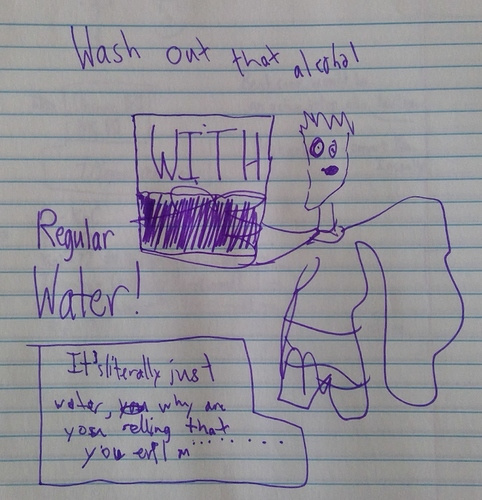 Wash out that alcohol
WITH
Regular
Water!
It's literally just
water, why are
you selling that
you